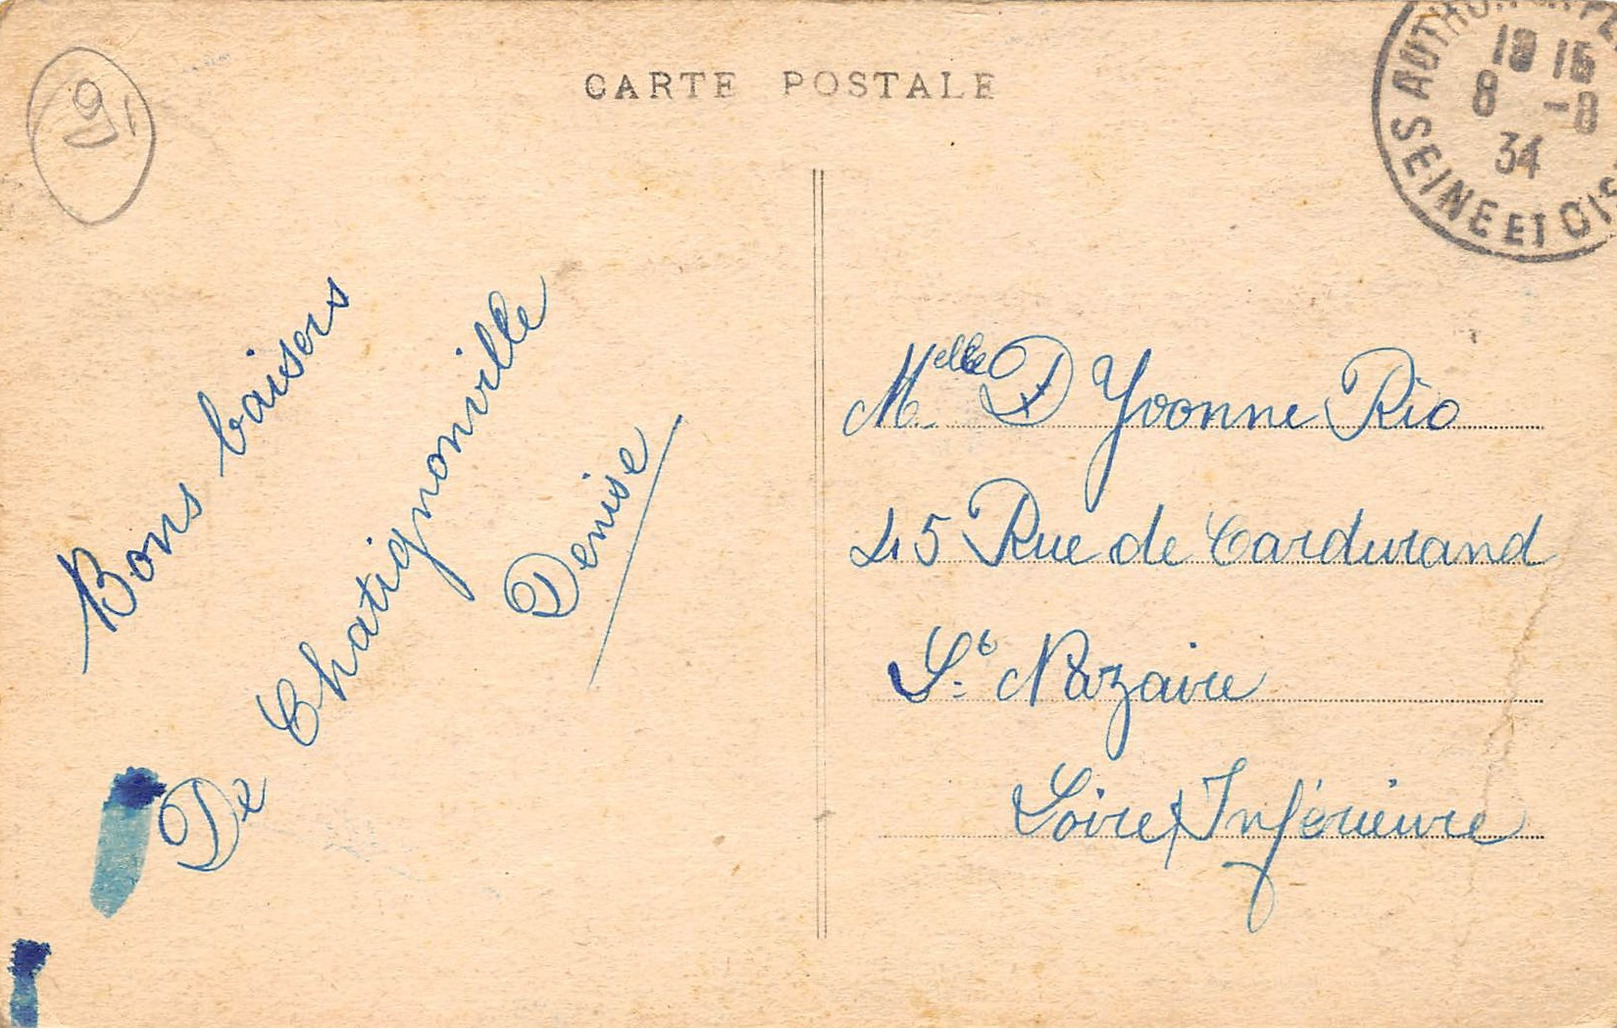 CARTE POSTALE
91
AUTHON
SEINE ET OIS
18 15
8 -8
34
Bons baisers
De Chatignonville
Denise
Melle D Yvonne Rio
45 Rue de Cardurand
St Nazaire
Loire Inférieure